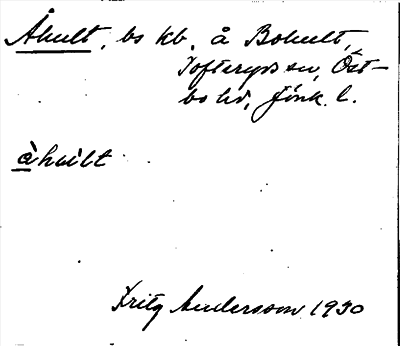 Åhult, bs kb. å Bohult,
Tofteryds sn, Öst-
bo hd, Jönk. l.
àhuḷt
Fritz Andersson 1930